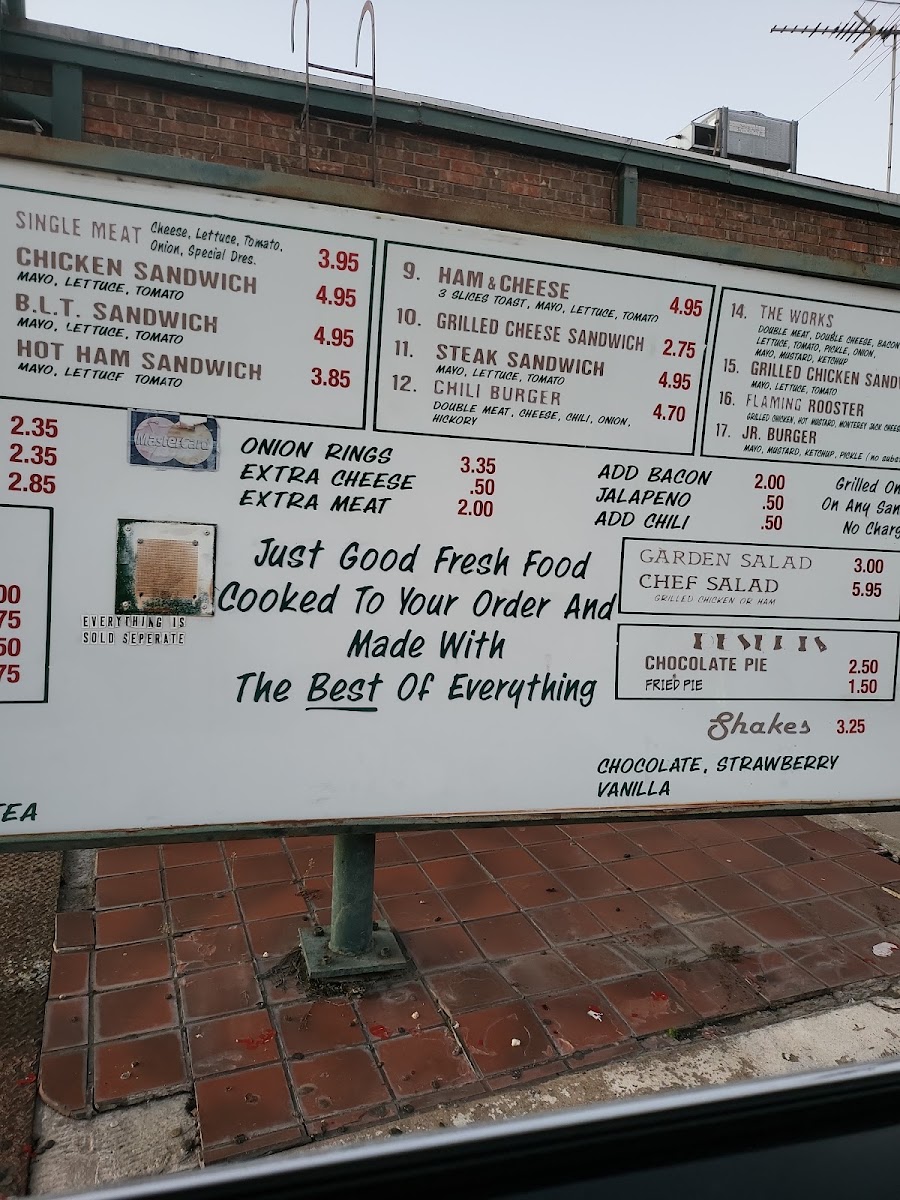 SINGLE MEAT Cheese, Lettuce, Tomato, 3.95
Onion, Special Dres.
CHICKEN SANDWICH 4.95
MAYO, LETTUCE, TOMATO
B.L.T. SANDWICH 4.95
MAYO, LETTUCE, TOMATO
HOT HAM SANDWICH 3.85
MAYO, LETTUCE TOMATO
9. HAM & CHEESE 4.95
3 SLICES TOAST, MAYO, LETTUCE, TOMATO
10. GRILLED CHEESE SANDWICH 2.75
11. STEAK SANDWICH 4.95
MAYO, LETTUCE, TOMATO
12. CHILI BURGER 4.70
DOUBLE MEAT, CHEESE, CHILI, ONION,
HICKORY
14. THE WORKS
DOUBLE MEAT, DOUBLE CHEESE, BACON
LETTUCE, TOMATO, PICKLE, ONION,
MAYO, MUSTARD, KETCHUP
15. GRILLED CHICKEN SANDW
MAYO, LETTUCE, TOMATO
16. FLAMING ROOSTER
GRILLED CHICKEN, HOT MUSTARD, MONTEREY JACK CHEES
17. JR. BURGER
MAYO, MUSTARD, KETCHUP, PICKLE (no subst
2.35
2.35
2.85
MasterCard
ONION RINGS 3.35
EXTRA CHEESE .50
EXTRA MEAT 2.00
ADD BACON 2.00
JALAPENO .50
ADD CHILI .50
Grilled On
On Any San
No Charg
00
75
50
75
EVERYTHING IS
SOLD SEPERATE
Just Good Fresh Food
Cooked To Your Order And
Made With
The Best Of Everything
GARDEN SALAD 3.00
CHEF SALAD 5.95
GRILLED CHICKEN OR HAM
CHOCOLATE PIE 2.50
FRIED PIE 1.50
Shakes 3.25
CHOCOLATE, STRAWBERRY
VANILLA
TEA